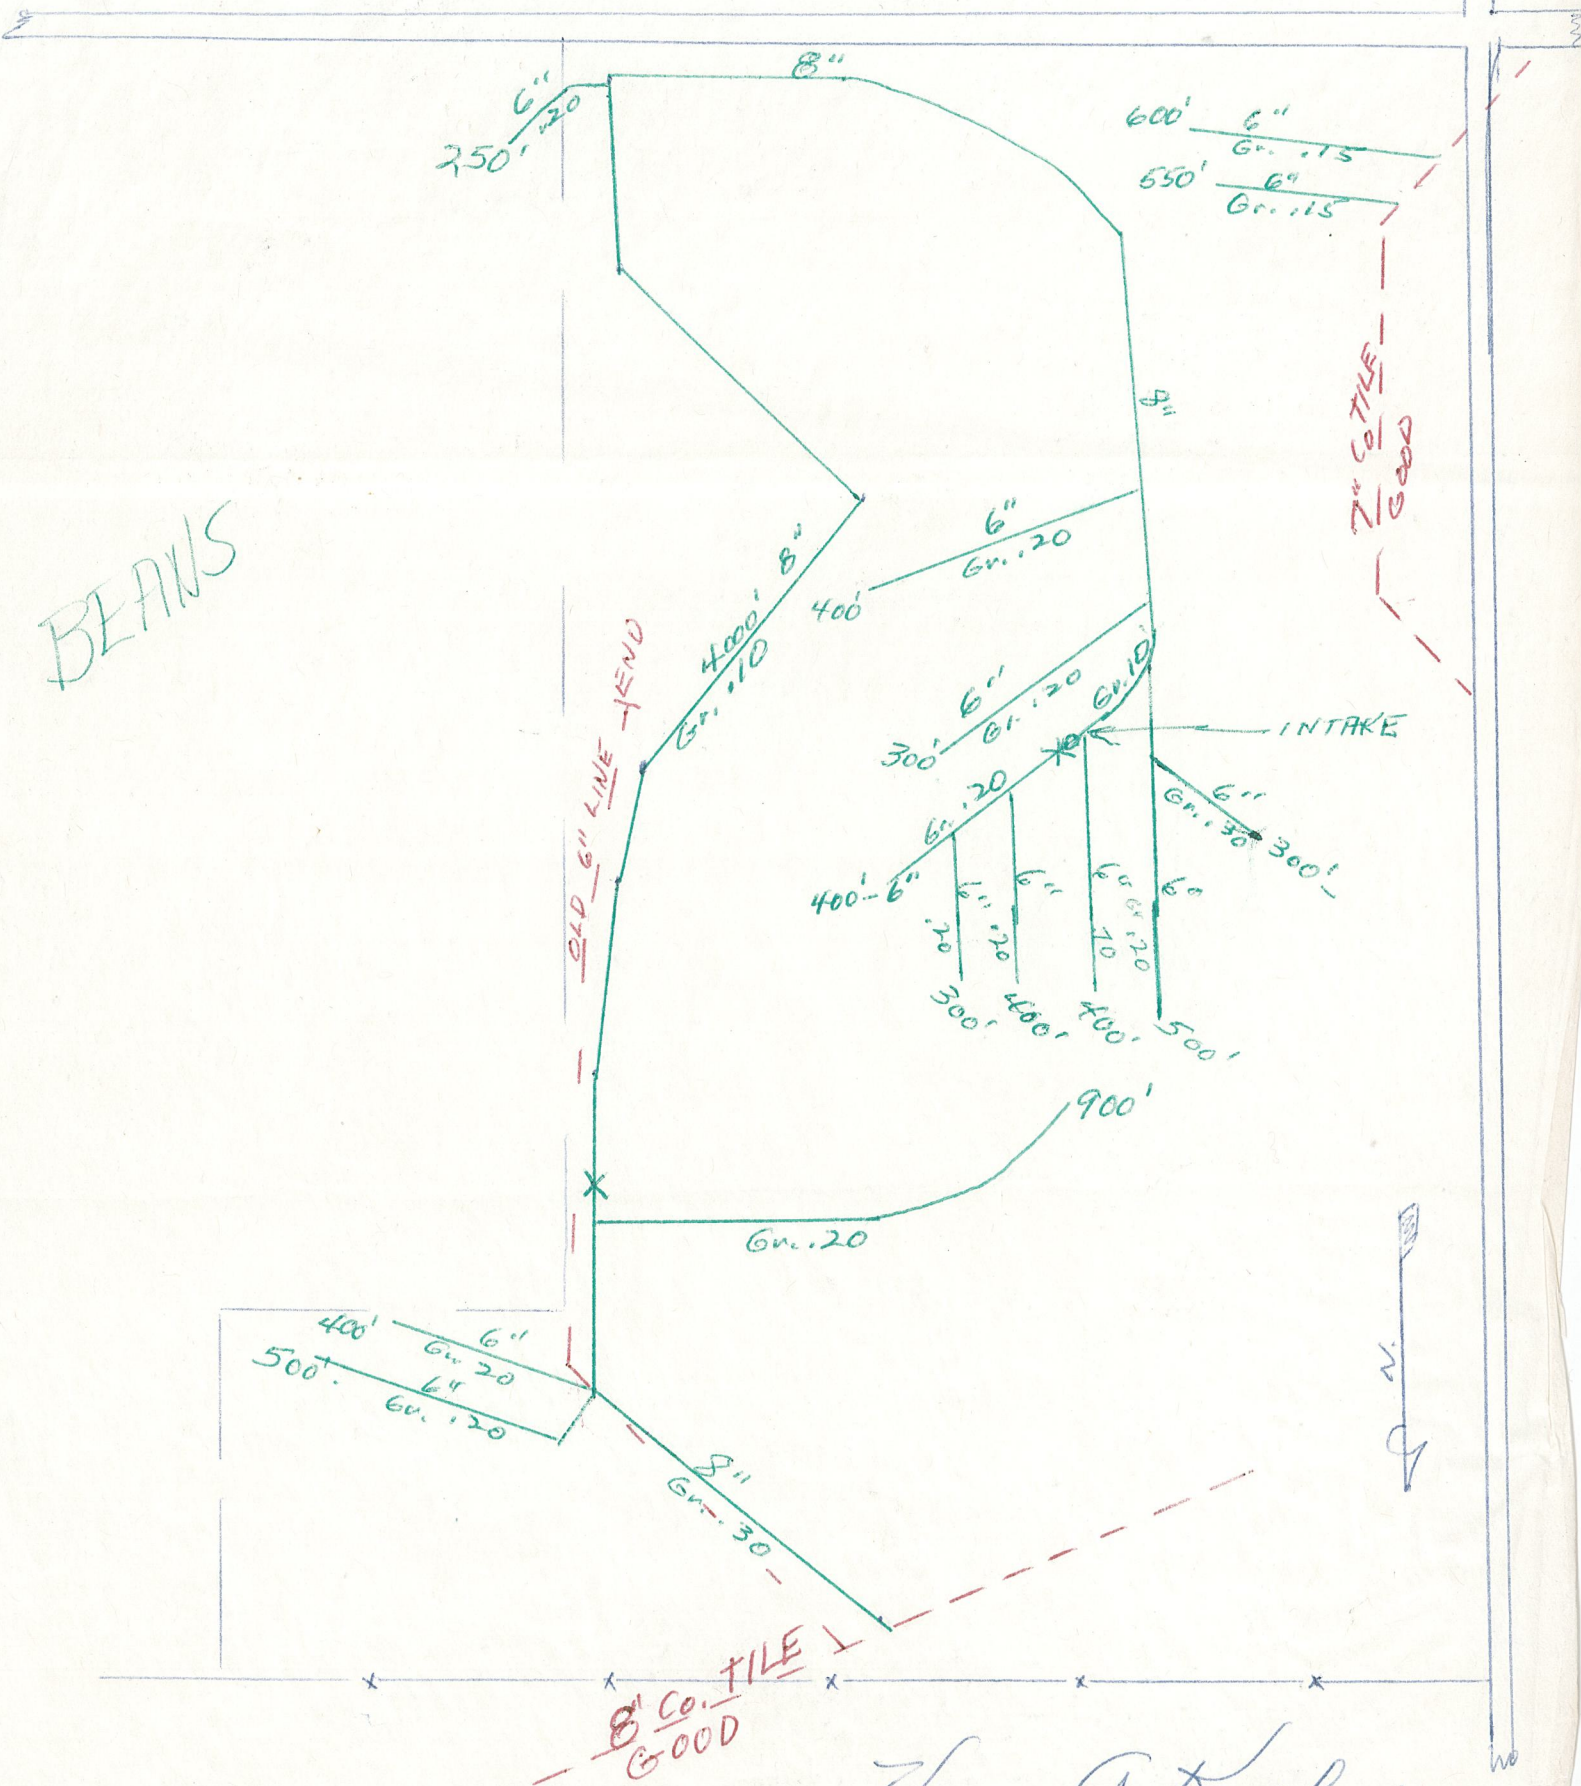 8"
6"
.20
250'
600' 6"
Gr. .15
550' 6"
Gr. .15
8"
7" Co TILE
GOOD
BEANS
6"
Gr. .20
400'
8"
4000'
Gr. .10
OLD 6" LINE END
6"
Gr. .20
300'
Gr. .10
INTAKE
Gr. .20
400'- 6"
6"
Gr. .30
300'
6"
.20
300'
6"
.20
400'
6"
.10
400'
6"
Gr. .20
500'
900'
Gr. .20
400' 6"
Gr. .20
500' 6"
Gr. .20
N.
8"
Gr. .30
8" Co. TILE
GOOD